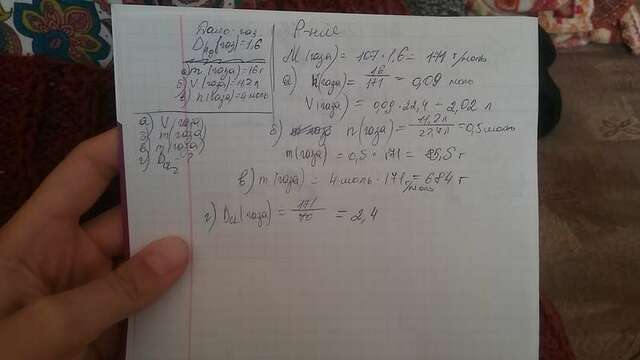 Дано: газ
D (газ)=1,6
а) m (газа) = 16 г
б) V (газа) = 11,2 л
в) n (газа) = 4 моль
а) V (газа)
б) m (газа)
в) m (газа)
г) D -?
Р-ние
M (газа) = 107 · 1,6 = 171 г/моль
а) n (газа) = 16/171 = 0,09 моль
V (газа) = 0,09 · 22,4 = 2,02 л
б) n (газа) = 11,2 л/22,4 л = 0,5 моль
m (газа) = 0,5 · 171 = 85,5 г
в) m (газа) = 4 моль · 171 г/моль = 684 г
г) D (газа) = 171/70 = 2,4